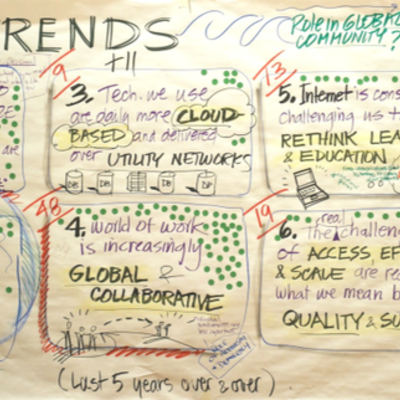 RENDS
+11
Role in GLOBAL
COMMUNITY?
9
3. Tech. we use
are daily more CLOUD-
BASED and delivered
over UTILITY NETWORKS
DB DB DB DB
13
5. Internet is cons
challenging us t
RETHINK LEA
& EDUCATION
48
4. world of work
is increasingly
GLOBAL &
COLLABORATIVE
19
6. The real challeng
of ACCESS, EF
& SCALE are re
what we mean b
QUALITY & SU
(Last 5 years over & over)
are